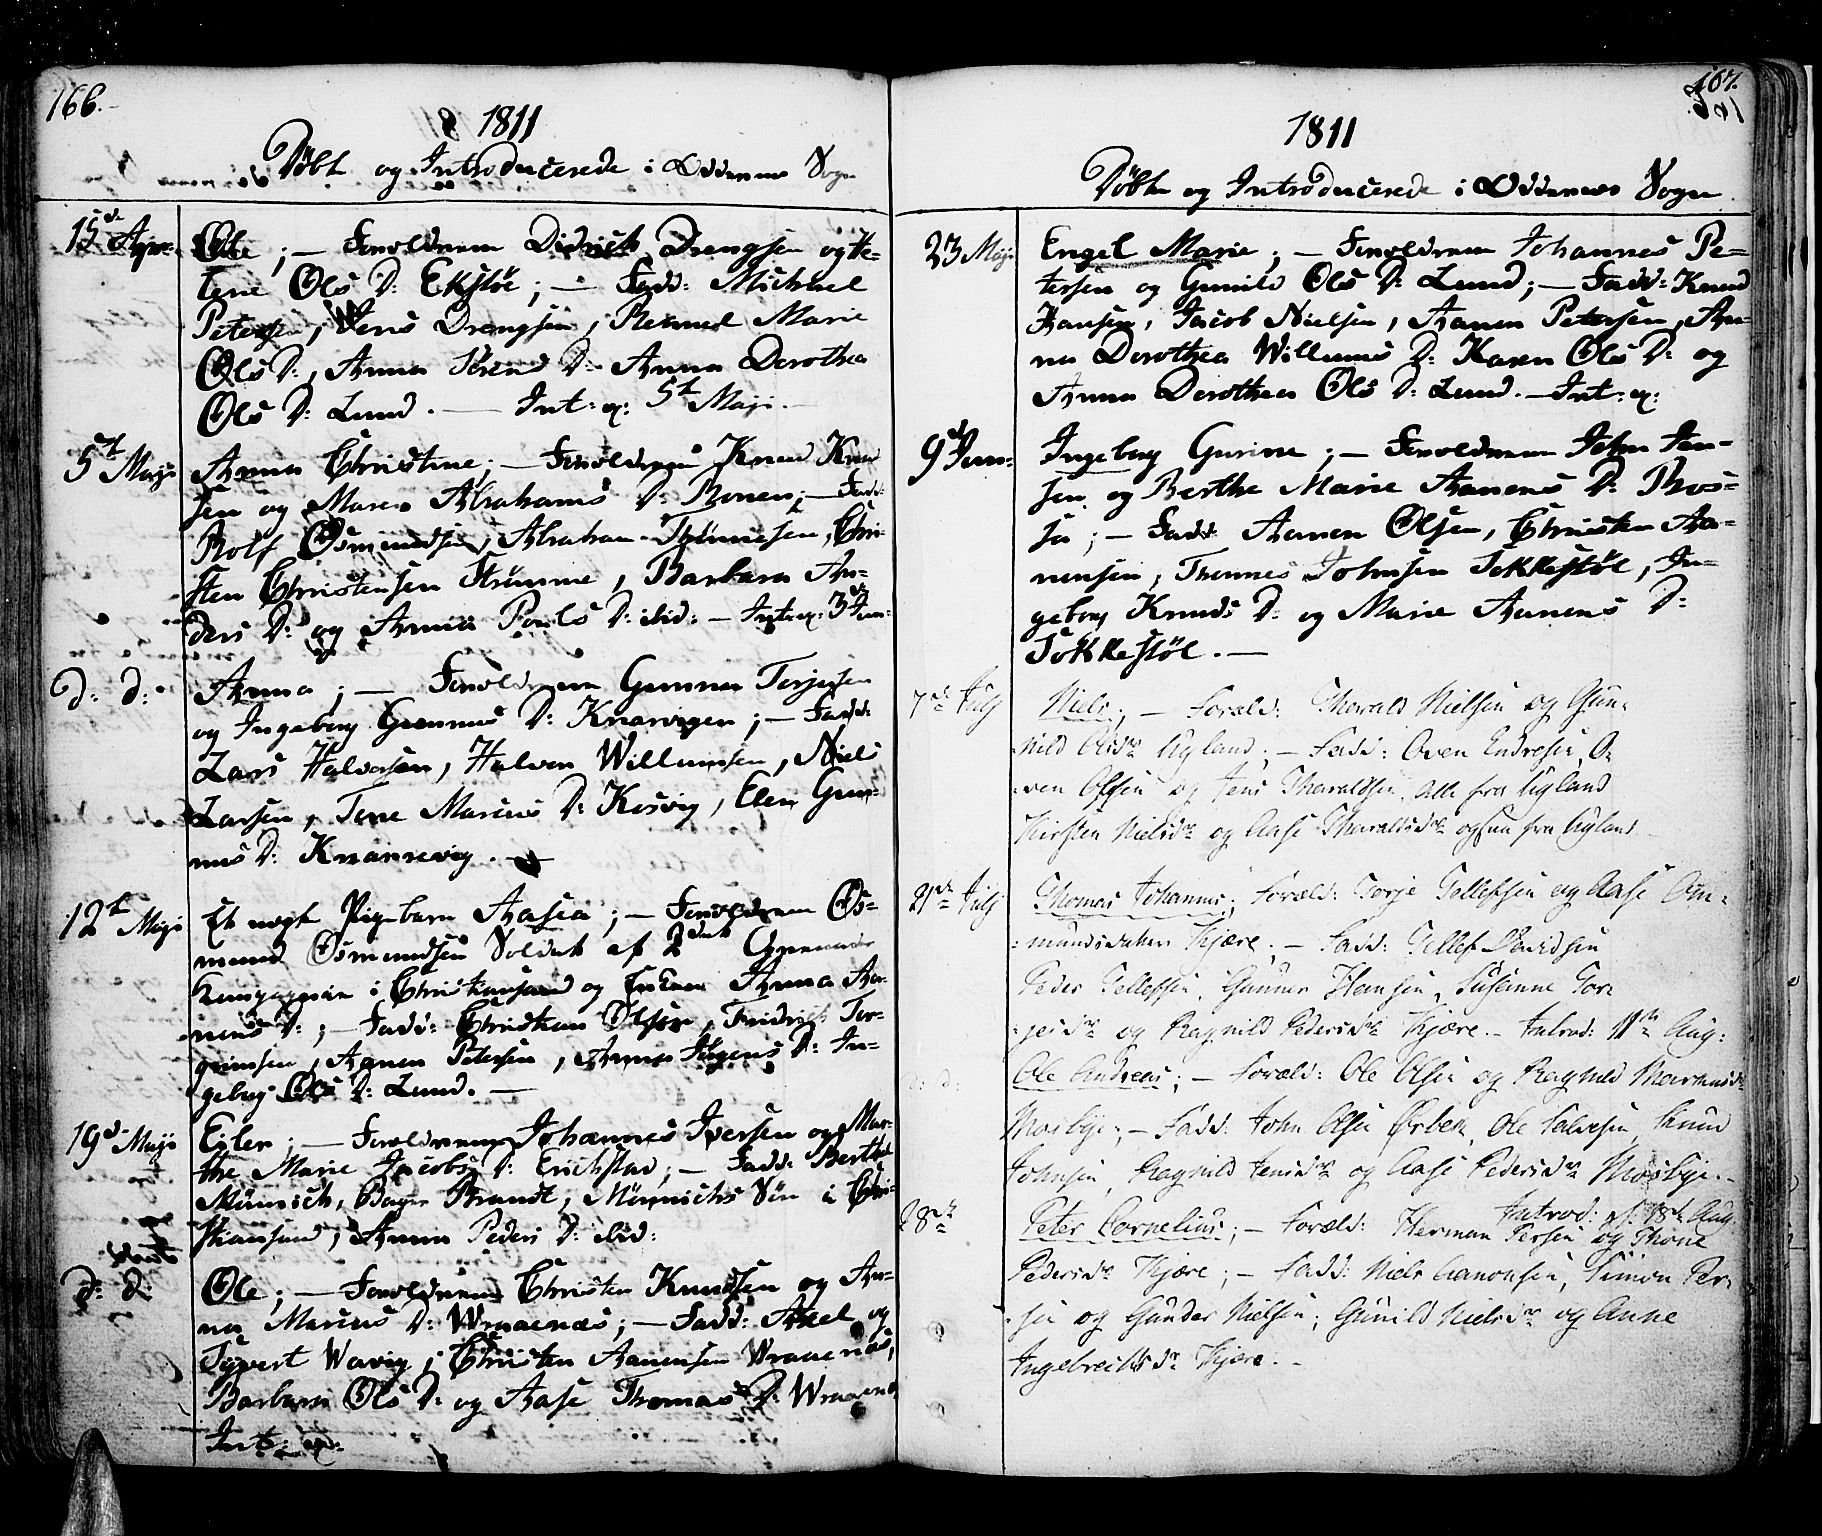 166.
1811
Døbte og Introducerede i Oddernes Sogn
15de Apr. Ole; — Forældrene Didrich Drengsen og Te-
lene Ols D: Ekstøe; — Fadd: Michael
Petersen, Jens Drengsen, Marie
Ols D:, Anna D: Anna Dorothea
Ols D: Lund. — Int: ex: 5te Maji. —
5te Maji Anna Christine; — Forældrene Knud Knud
sen og Maren Abrahams D: Ronen; — Fadd:
Rolf Osmundsen, Abraham Tønnesen, Chri-
sten Christensen Strømme, Barbara An-
ders D: og Anna Pouls D: ibid: — Int: ex: 3 Jun:
D: D: Anna; — Forældrene Gunner Terjesen
og Ingeborg Gunners D: Knarvigen; — Fadd:
Lars Halvorsen, Halvor Willumsen, Niels
Larsen, Tone Marcus D: Kosvig, Elen Gun-
ners D: Knarrevig. —
12te Maji Et uægte Pigebarn Aasea; — Forældrene Os-
mund Osmundsen Soldat af 2det Grenader
Kompagnie i Christiansand og Enken Anna Aa-
nens D:; — Fadd: Christian Olsen, Fridrich Tor-
grimsen, Aanen Petersen, Anna D: In-
geborg Ols D: Lund. —
19de Maji Eiler; — Forældrene Johannes Iversen og Mar-
the Marie Jacobs D: Erichstad; — Fadd: Berthe
Münnich, Bager Brandt, Münnichs Søn i Chri-
stiansand, Anna Peders D: ibid:
D: D: Ole; — Forældrene Christen Knudsen og An-
na Marcus D: Wraaenæs; — Fadd: Axel og
Syvert Wovig, Christen Aanensen Wraaenæs,
Barbara Ols D: og Aase Thomas D: Wraaenæs
Int: ex:
167.
1811
Døbte og Introducerede i Oddernes Sogn
23 Maji Engel Marie; — Forældrene Johannes Pe-
tersen og Gunild Ols D: Lund; — Fadd: Knud
Hansen, Jacob Nielsen, Aanen Petersen, An-
na Dorothea Willums D: Karen Ols D: og
Anna Dorothea Ols D: Lund. — Int: ex:
9de Jun: Ingeborg Gurine; — Forældrene John Jen-
sen og Berthe Marie Aanens D: Thos-
; — Fadd: Aanen Olsen, Christen Aa-
nensen, Thomes Johnsen Tokkestøl, In-
geborg Knuds D: og Marie Aanens D:
Tokkestøl. —
7de Julj Niels; — Foræld: Tharald Nielsen og Gun-
nild Olsdr Ugland; — Fadd: Oven Endresen, O-
ven Olsen og Jens Tharaldsen, alle fra Ugland
Kirsten Nielsdr og Aase Tharaldsdr ogsaa fra Ugland
21de Julj Thomas Johannes; Foræld: Torje Tellefsen og Aase Om-
mundsdatter Kjære. — Fadd: Tellef Davidsen
Peder Tellefsen, Gunner Hansen, Susanne Tor-
jesdr og Ragnild Pedersdr Kjære. — Introd: 11te Aug:
D: D: Ole Andreas; — Foræld: Ole Olsen og Ragnild Mortensdr
Mosbye; — Fadd: John Olsen Ørbek, Ole Salvesen, Knud
Johnsen, Ragnild Jensdr og Aase Pedersdr Mosbye. —
Introd: d: 18de Aug
28de Peter Cornelius; — Foræld: Herman Persen og Thone
Pedersdr Kjære; — Fadd: Niels Aanonsen, Simon Per-
sen og Gunder Nielsen, Gunild Nielsdr og Anne
Ingebrechtsdr Kjære. —